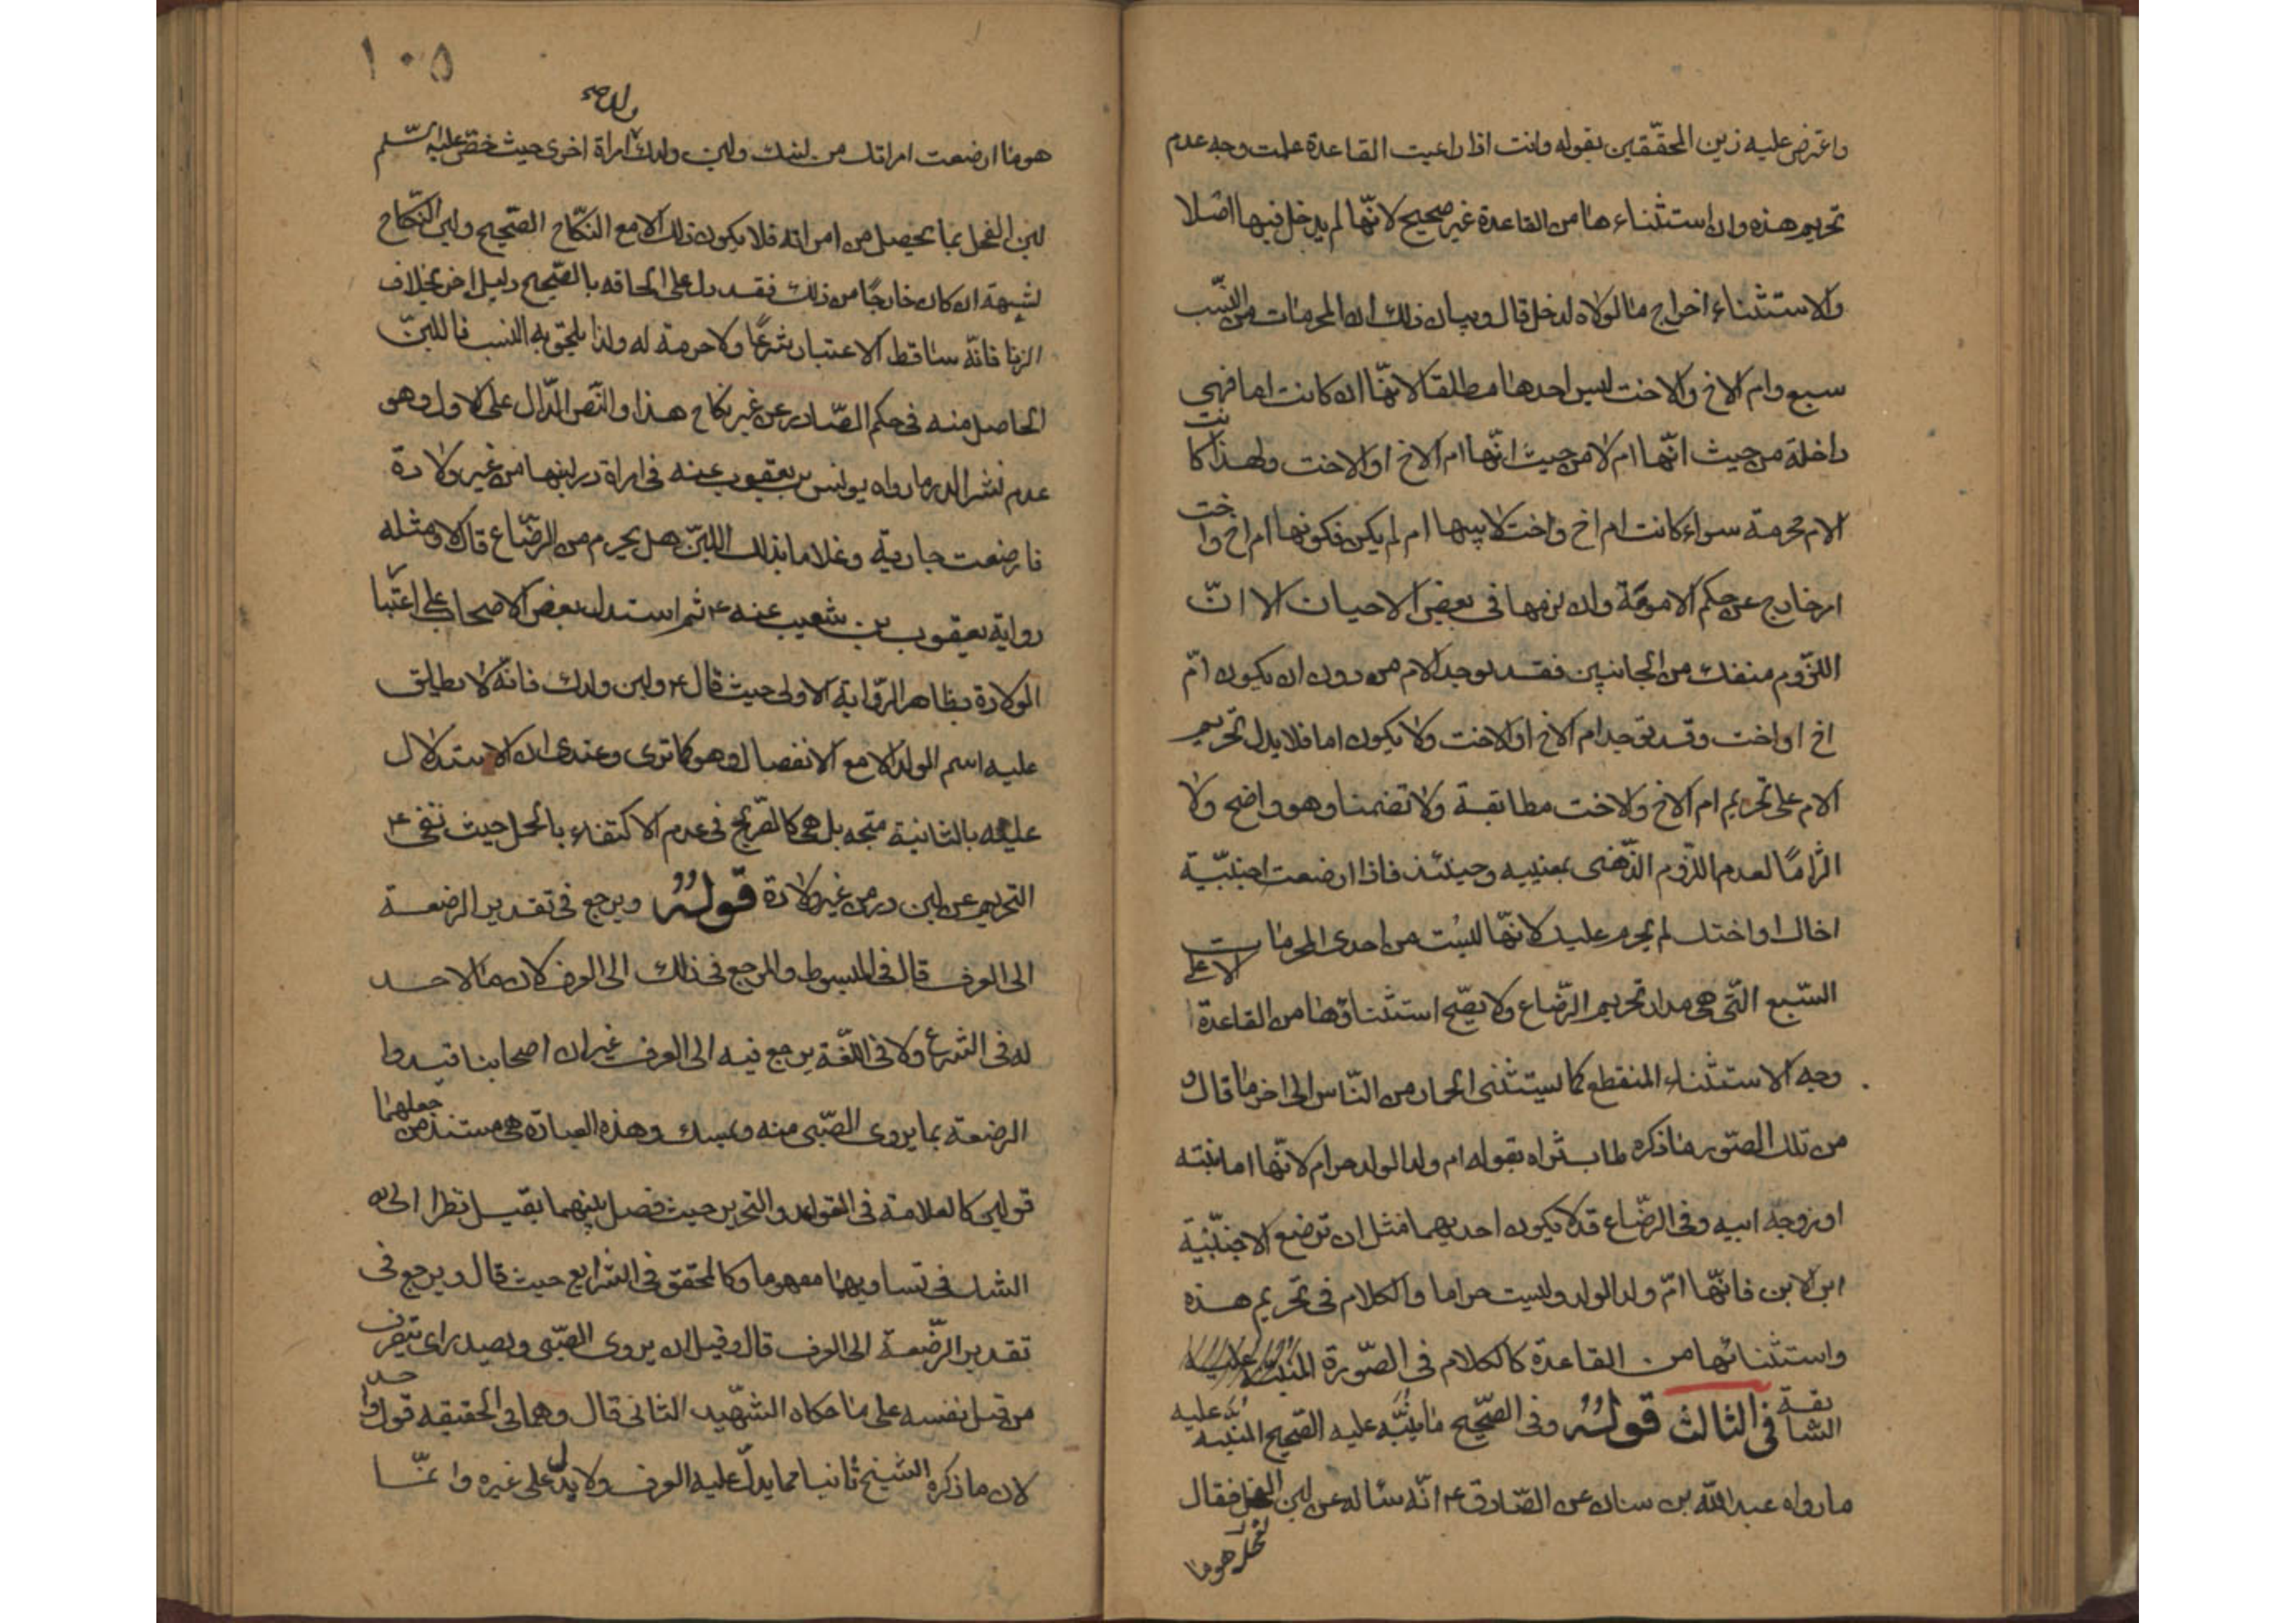 واعترض عليه زين المحقّقين بقوله وانت اذا راعيت القاعدة علمت وجه عدم
تحريم هذه وان استثناءها من القاعدة غير صحيح لانّها لم يدخل فيها اصلا
والاستثناء اخراج ما لولاه لدخل قال وبيان ذلك ان المحرمات من النّسب
سبع وام الاخ والاخت ليس احدها مطلقا لانّها ان كانت اما فهى
داخلة من حيث انّها ام لا من حيث انّها ام الاخ او الاخت ولهذا كانت
الام محرمة سواء كانت ام اخ واخت لابيها ام لم يكن فكونها ام اخ واخت
امر خارج عن حكم الامومة وان لزمها فى بعض الاحيان الا انّ
اللزوم منفك من الجانبين فقد توجد الام من دون ان يكون امّ
اخ او اخت وقد توجد ام الاخ او الاخت ولا يكون اما فلا يدل تحريم
الام على تحريم ام الاخ والاخت مطابقة ولا تضمنا وهو واضح ولا
التزامًا لعدم اللّزوم الذّهنى بمعنييه وحينئذ فاذا ارضعت اجنبيّة
اخاك او اختك لم يحرم عليك لانّها ليست من احدى المحرمات
السّبع الّتى هى مدار تحريم الرّضاع ولا يصّح استثناؤها من القاعدة الا على
وجه الاستثناء المنقطع كما يستثنى الحمار من النّاس الى اخر ما قال و
من تلك الصّور ما ذكره طاب ثراه بقوله ام ولد الولد حرام لانّها اما بنته
او زوجة ابنه وفى الرضّاع قد لا يكون احديهما مثل ان ترضع الاجنبيّة
ابن الابن فانّها امّ ولد الولد وليست حراما والكلام فى تحريم هذه
واستثنائها من القاعدة كالكلام فى الصّورة
السّابقة فى الثالث قوله وفى الصّحيح ما ينبّه عليه الصّحيح المنبّه عليه
ما رواه عبد اللّه بن سنان عن الصّادق ع انّه ساله عن لبن الفحل فقال
الفحل هو ما
١٠٥
ولدك صح
هو ما ارضعت امراتك من لبنك ولبن ولدك امراة اخرى حيث خصّ عليه السّلم
لبن الفحل بما يحصل من امراته فلا يكون ذلك الا مع النكّاح الصّحيح ولبن النّكاح
لشبهة ان كان خارجًا من ذلك فقد دل على الحاقه بالصّحيح دليل اخر بخلاف
الزنا فانّه ساقط الاعتبار شرعًا ولا حرمة له ولذا يلحق به النسب فاللبن
الحاصل منه فى حكم الصّادر عن غير نكاح هذا والنّص الدّال على الاول وهو
عدم نشر الدر ما رواه يونس بن يعقوب عنه فى امراة در لبنها من غير ولادة
فارضعت جارية وغلاما بذلك اللبن هل يحرم من الرضّاع قال لا ومثله
رواية يعقوب بن شعيب عنه ع ثم استدل بعض الاصحاب على اعتبار
الولادة بظاهر الرّواية الاولى حيث قال ع ولبن ولدك فانّه لا يطلق
عليه اسم الولد الا مع الانفصال وهو كما ترى وعندى ان الاستدلال
عليه بالثانية متجه بل هى كالصّريح فى عدم الاكتفاء بالحمل حيث نفى ع
التحريم عن لبن در من غير ولادة قوله ويرجع فى تقدير الرضعة
الى العرف قال فى المبسوط والمرجع فى ذلك الى العرف لان ما لا حد
له فى الشرع ولا فى اللّغة يرجع فيه الى العرف غير ان اصحابنا قيدوا
الرضعة بما يروى الصّبى منه ويمسك وهذه العبارة هى مستند من جعلهما
قولين كالعلامة فى القواعد والتحرير حيث فصل بينهما بقيل نظرا الى
الشك فى تساويهما مفهوما وكالمحقق فى الشرايع حيث قال ويرجع فى
تقدير الرّضعة الى العرف قال وقيل ان يروى الصّبى ويصدر اى يتصرف
من قبل نفسه على ما حكاه الشّهيد الثانى قال وهما فى الحقيقه قول واحد
لان ما ذكره الشيخ ثانيا مما يدلّ عليه العرف ولا يدل على غيره وانّما